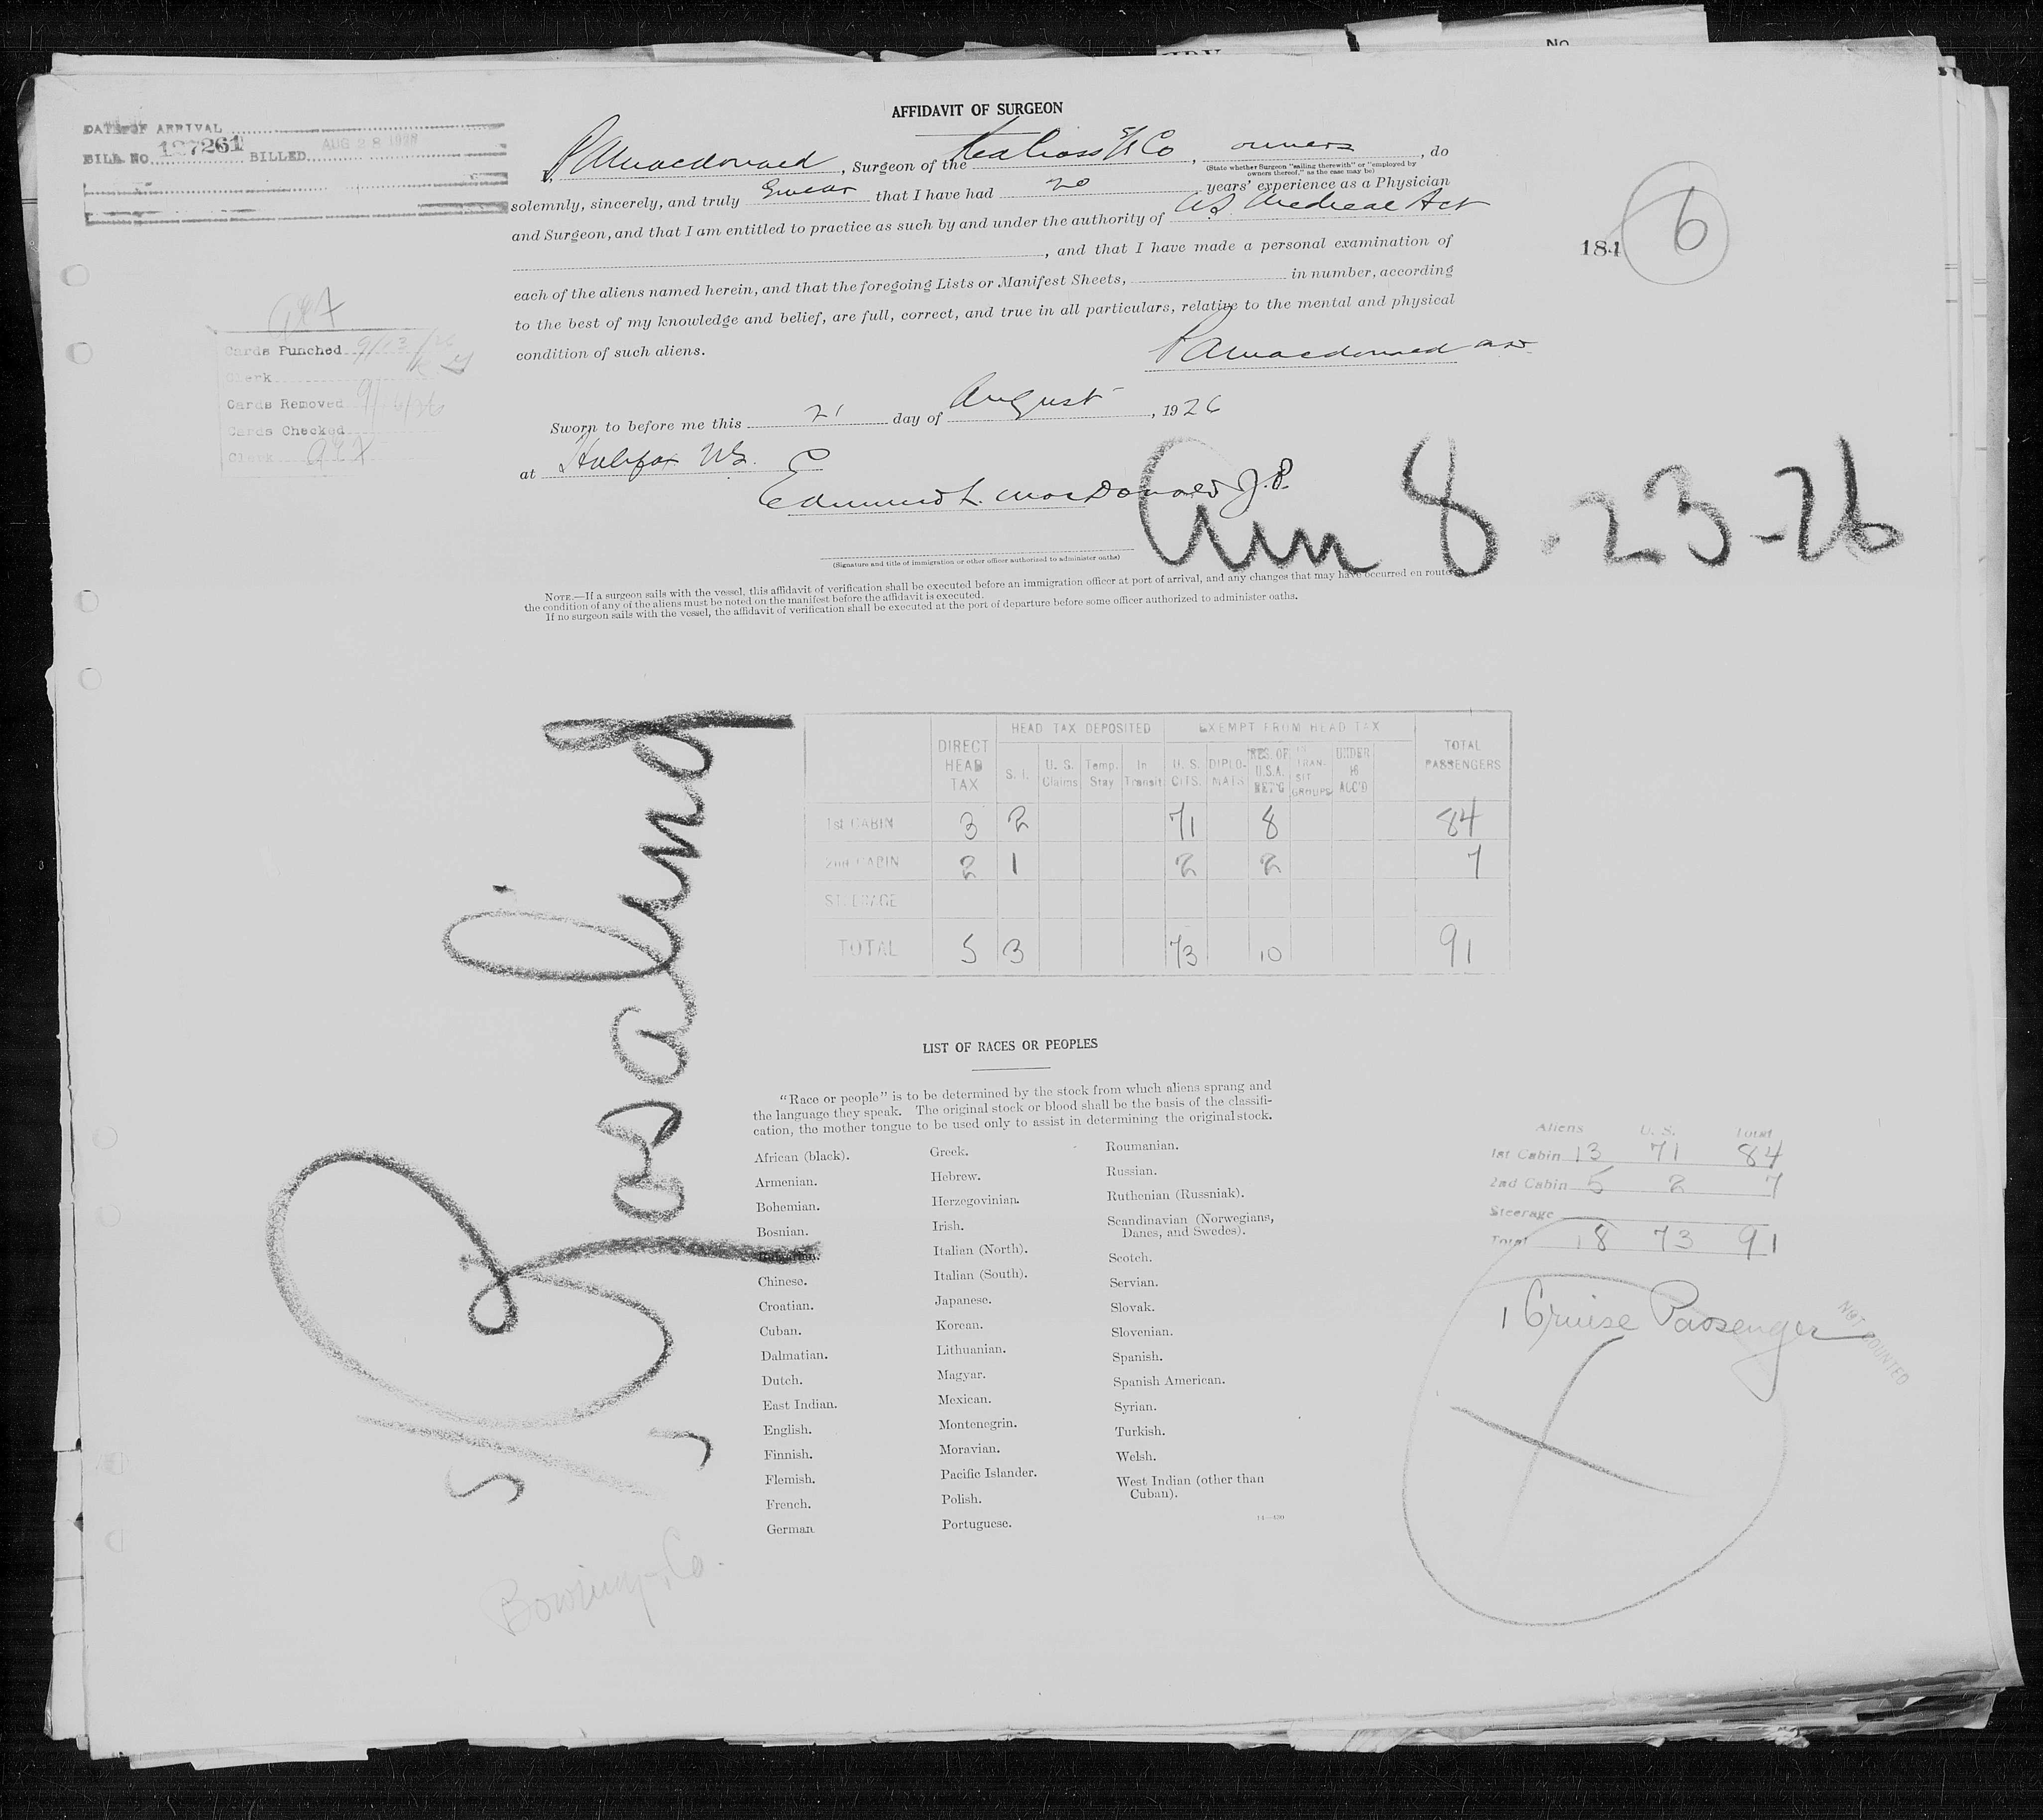 No.
AFFIDAVIT OF SURGEON
DATE OF ARRIVAL
BILL NO. 127261 BILLED AUG 28 1926
P A Macdonald, Surgeon of the Red Cross S/S Co, owners, do
(State whether Surgeon "sailing therewith" or "employed by
owners thereof," as the case may be)
solemnly, sincerely, and truly swear that I have had 20 years' experience as a Physician
and Surgeon, and that I am entitled to practice as such by and under the authority of N.S. Medical Act
, and that I have made a personal examination of
each of the aliens named herein, and that the foregoing Lists or Manifest Sheets, in number, according
to the best of my knowledge and belief, are full, correct, and true in all particulars, relative to the mental and physical
condition of such aliens.
P A Macdonald MD
184
6
Cards Punched 9/13/26
Clerk
Cards Removed
Cards Checked
Clerk
Sworn to before me this 21 day of August, 1926
at Halifax NS.
Edmund L. MacDonald J.P.
Arr 8-23-26
(Signature and title of immigration or other officer authorized to administer oaths)
NOTE.—If a surgeon sails with the vessel, this affidavit of verification shall be executed before an immigration officer at port of arrival, and any changes that may have occurred en route
the condition of any of the aliens must be noted on the manifest before the affidavit is executed.
If no surgeon sails with the vessel, the affidavit of verification shall be executed at the port of departure before some officer authorized to administer oaths.
S/S Rosalind
DIRECT HEAD TAX HEAD TAX DEPOSITED EXEMPT FROM HEAD TAX TOTAL PASSENGERS
S. I. U. S. Claims Temp. Stay In Transit U. S. CITS. DIPLO-MATS RES. OF U.S.A. RET'G IN TRAN-SIT GROUPS UNDER 16 ACC'D
1st CABIN 3 2 71 8 84
2nd CABIN 2 1 2 2 7
STEERAGE
TOTAL 5 3 73 10 91
LIST OF RACES OR PEOPLES
"Race or people" is to be determined by the stock from which aliens sprang and
the language they speak. The original stock or blood shall be the basis of the classifi-
cation, the mother tongue to be used only to assist in determining the original stock.
African (black).
Armenian.
Bohemian.
Bosnian.
Bulgarian.
Chinese.
Croatian.
Cuban.
Dalmatian.
Dutch.
East Indian.
English.
Finnish.
Flemish.
French.
German
Greek.
Hebrew.
Herzegovinian.
Irish.
Italian (North).
Italian (South).
Japanese.
Korean.
Lithuanian.
Magyar.
Mexican.
Montenegrin.
Moravian.
Pacific Islander.
Polish.
Portuguese.
Roumanian.
Russian.
Ruthenian (Russniak).
Scandinavian (Norwegians,
Danes, and Swedes).
Scotch.
Servian.
Slovak.
Slovenian.
Spanish.
Spanish American.
Syrian.
Turkish.
Welsh.
West Indian (other than
Cuban).
14—430
Aliens U. S. Total
1st Cabin 13 71 84
2nd Cabin 5 2 7
Steerage
Total 18 73 91
1 Cruise Passenger
NOT COUNTED
Bowring & Co.